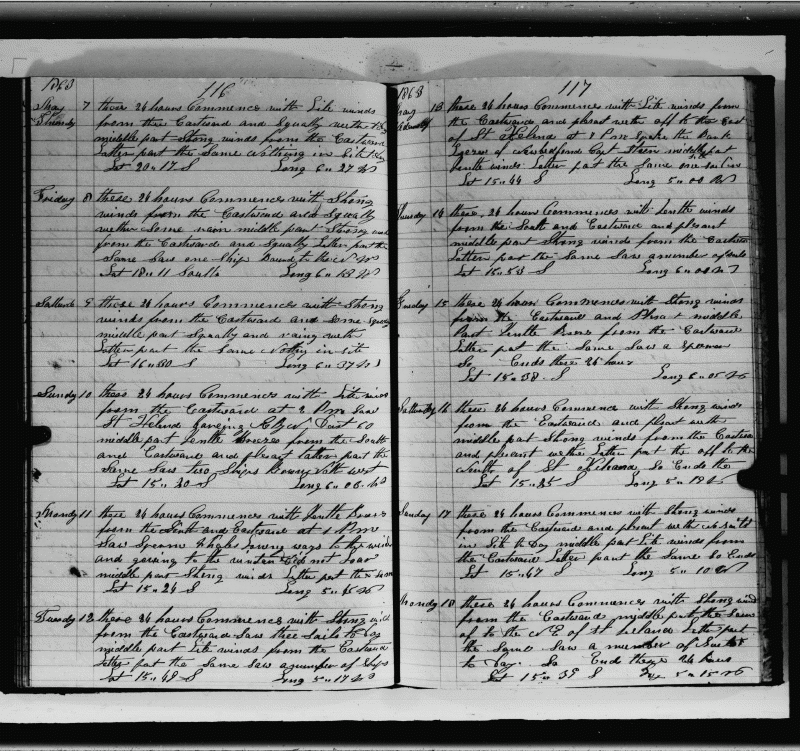 1863 116
May 7 these 24 hours Commences with Lite winds
Thursday from the Eastward and Squally wether
middle part Strong winds from the Eastward
latter part the Same Nothing in Site
Lat 20 " 17 S Long 6 " 27 W
Friday 8 these 24 hours Commences with Strong
winds from the Eastward and Squally
wether Some rain middle part Strong
from the Eastward and Squally Latter part the
Same Saw one Ship Bound to the N W
Lat 18 " 11 South Long 6 " 18 W
9 these 24 hours Commences with Strong
winds from the Eastward and Some Squaly
middle part Squally and rainy weth
Latter part the Same Nothing in Site
Lat 16 " 50 S Long 6 " 37 W
Sunday 10 these 24 hours Commences with Lite winds
from the Eastward at 2 P m Saw
St Helena Dist 60
middle part Gentle Breezes from the South
and Eastward and plesent latter part the
Same Saw two Ships
Lat 15 " 30 S Long 6 " 06 W
Monday 11 these 24 hours Commences with Gentle
from the South and Eastward at 1 P m
Saw Sperm Whales going to the
and to the did not
middle part Strong winds Latter part the Same
Lat 15 " 24 S Long 5 " 45 W
Tuesday 12 these 24 hours Commences with Strong wind
from the Eastward Saw three Sails to Day
middle part Lite winds from the Eastward
Latter part the Same Saw a number of Ships
Lat 15 " 48 S Long 5 " 17 W
1863 117
May 13 these 24 hours Commences with Lite winds from
the Eastward and plesent wether off to the East
of St Helena at 8 P m Spoke the Bark
of New Bedford Capt middle part
Gentle winds Latter part the Same
Lat 15 " 44 S Long 5 " 00 W
14 these 24 hours Commences with Gentle winds
from the South and Eastward and plesent
middle part Strong winds from the Eastward
Latter part the Same Saw a number of
Lat 15 " 53 S Long 6 " 00 W
15 these 24 hours Commences with Strong winds
from the Eastward and middle
Part Gentle from the Eastward
Latter part the Same Saw a
So Ends these 24 hours
Lat 15 " 38 S Long 6 " 05 W
16 these 24 hours Commence with Strong winds
from the Eastward and plesent weth
middle part Strong winds from the Eastward
and plesent wether Latter part the off to the
South of St Helena So Ends the
Lat 15 " 25 S Long 5 " 12 W
Sunday 17 these 24 hours Commences with Strong winds
from the Eastward and plesent wether
in Site to Day middle part Lite winds from
the Eastward Latter part the Same So Ends
Lat 15 " 47 S Long 5 " 10 W
Monday 18 these 24 hours Commences with Strong wind
from the Eastward middle part the Same
of to the N E of St Helena Latter part
the Same Saw a number of
to Day So Ends these 24 hours
Lat 15 " 35 S 5 " 15 W